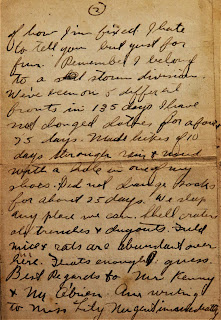 2
of how I'm fixed I hate
to tell you but just for
fun. Remember I belong
to a storm division.
We've been on 5 different
fronts in 135 days I have
not changed clothes for
75 days. Made hikes of 10
days through rain & mud
with a hole in one of my
shoes. Did not change socks
for about 25 days. We sleep
any place we can. Shell craters
old trenches & dugouts. Field
mice & rats are abundant over
here. That's enough I guess
Best Regards to Mrs Kenny
& Mr. O'Brien Am writing
to Miss Lily immediately